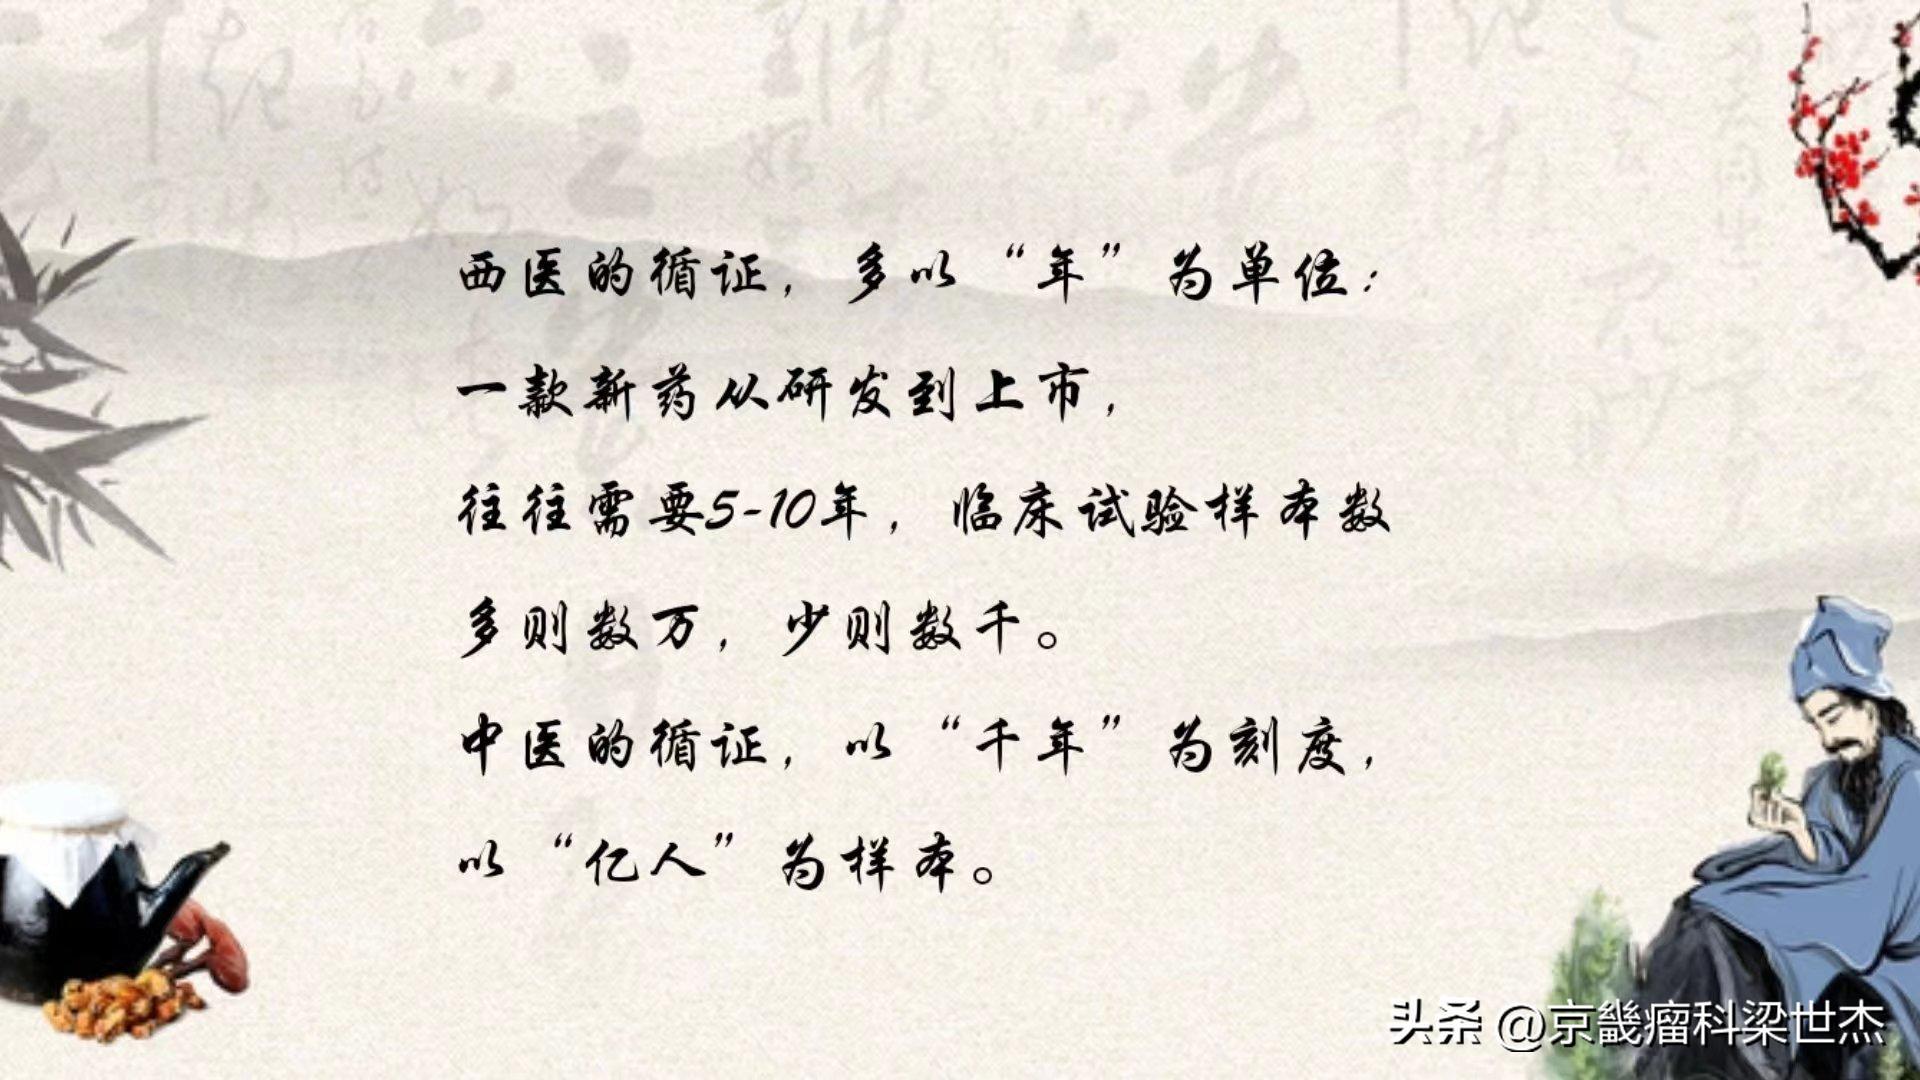 西医的循证，多以“年”为单位：
一款新药从研发到上市，
往往需要5-10年，临床试验样本数
多则数万，少则数千。
中医的循证，以“千年”为刻度，
以“亿人”为样本。
头条 @京畿瘤科梁世杰